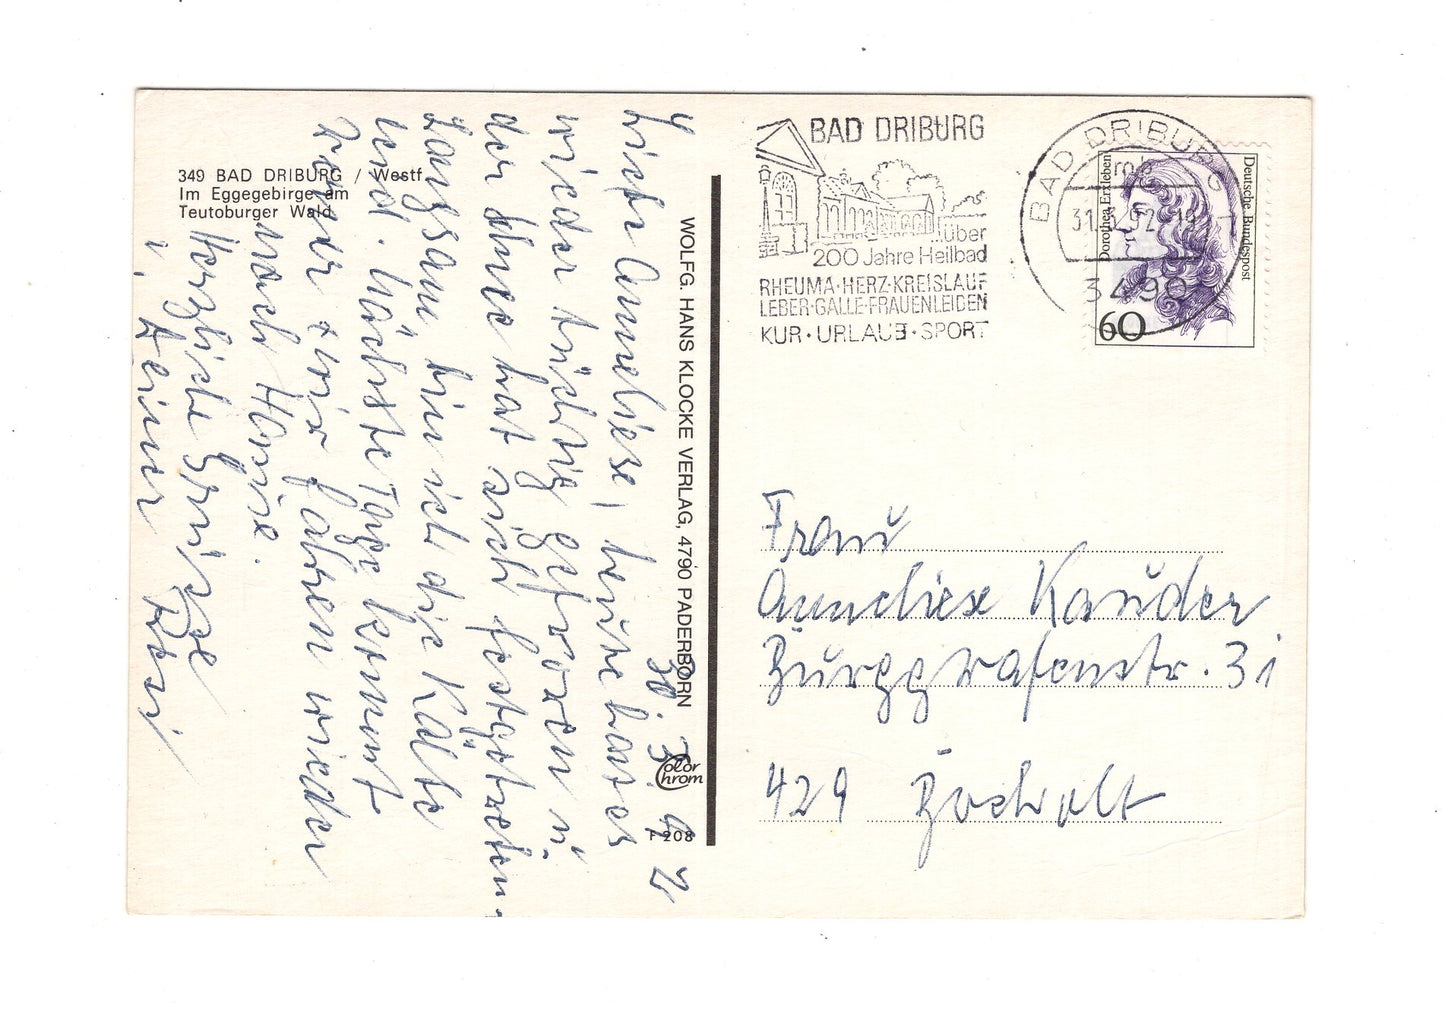 349 BAD DRIBURG / Westf.
Im Eggegebirge am
Teutoburger Wald
WOLFG. HANS KLOCKE VERLAG, 4790 PADERBORN
Color
Chrom
F 208
30. 3. 92
Liebe Anneliese, heute hat es
wieder tüchtig gefroren u.
der hat sich festgetreten.
Langsam bin ich die Kälte
leid. Nächste Tage kommt
+ wir fahren wieder
nach Hause.
Herzliche Grüsse
BAD DRIBURG
...über
200 Jahre Heilbad
RHEUMA·HERZ·KREISLAUF
LEBER·GALLE·FRAUENLEIDEN
KUR·URLAUB·SPORT
BAD DRIBURG
mb
31. 92-19
3490
Dorothea Erxleben
Deutsche Bundespost
60
Frau
Anneliese Kauder
Burggrafenstr. 31
429 Bocholt